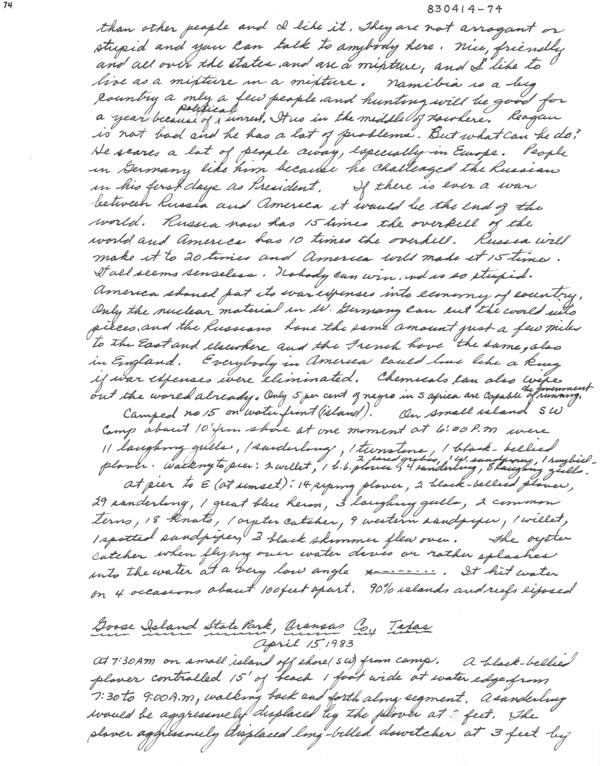 74
830414-74
than other people and I like it. They are not arrogant or
stupid and you can talk to anybody here. Nice, friendly
and all over the states and are a mixture, and I like to
live as a mixture in a mixture. Namibia is a big
country a only a few people and hunting will be good for
a year because of political unrest. It is in the middle of nowhere. Reagan
is not bad and he has a lot of problems. But what can he do?
He scares a lot of people away, especially in Europe. People
in Germany like him because he challenged the Russian
in his first days as President. If there is ever a war
between Russia and America it would be the end of the
world. Russia now has 15 times the overkill of the
world and America has 10 times the overkill. Russia will
make it to 20 times and America will made it 15 time.
It all seems senseless. Nobody can win and is so stupid.
America should put its war expenses into economy of country.
Only the nuclear material in W. Germany can cut the world into
pieces and the Russians have the same amount just a few miles
to the East and elsewhere and the French have the same, also
in England. Everybody in America could live like a king
if war expenses were eliminated. Chemicals can also wipe
out the world already. Only 5 per cent of negro in S africa are capable of running the government
Camped no 15 on water front (island). On small island SW
Camp about 10' from shore at one moment at 6:00 P.M were
11 laughing gulls, 1 sanderling, 1 turnstone, 1 black-bellied
plover. Walking to pier: 2 willet, 1 b.b. plover, 4 sanderling, 8 laughing gulls.
At pier to E (at sunset): 14 piping plover, 2 black-bellied plover,
29 sanderling, 1 great blue heron, 3 laughing gulls, 2 common
terns, 18 knots, 1 oyster catcher, 9 western sandpiper, 1 willet,
1 spotted sandpiper, 3 black skimmer flew over. The oyster
catcher when flying over water dives or rather splashes
into the water at a very low angle. It hit water
on 4 occasions about 100 feet apart. 90% islands and reefs exposed
Goose Island State Park, Aransas Co., Texas
April 15 1983
At 7:30 AM on small island off shore (SW) from camp. A black-bellied
plover controlled 15' of beach 1 foot wide at water edge from
7:30 to 9:00 A.M, walking back and forth along segment. A sanderling
would be aggressively displaced by the plover at feet. The
plover aggressively displaced long-billed dowitcher at 3 feet by